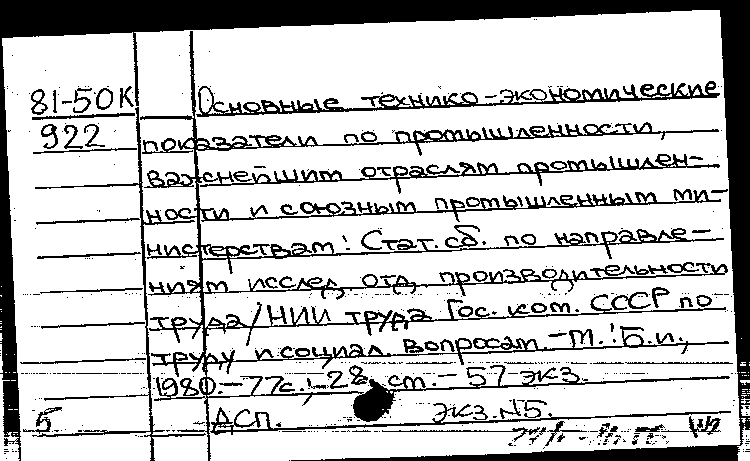 81-50К Основные технико-экономические
922 показатели по промышленности,
важнейшим отраслям промышлен-
ности и союзным промышленным ми-
нистерствам: Стат. сб. по направле-
ниям исслед. отд. производительности
труда/НИИ труда Гос. ком. СССР по
труду и социал. вопросам. – М.: Б.и.,
1980. – 77с.; 28 см. – 57 экз.
5 ДСП. экз. N5.